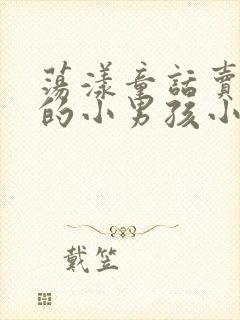 荡漾童話賣
的小男孩小
戴笠